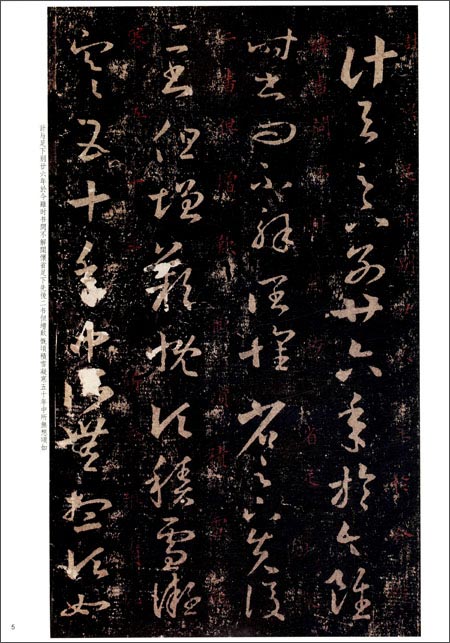 計与足下別廿六年於今雖
時書問不解闊懷省足下先後
二書但增歎慨頃積雪凝
寒五十年中所無想頃如
計与足下别廿六年於今雖时书問不解闊懷省足下先後二书但增歎慨頃積雪凝寒五十年中所無想頃如
5